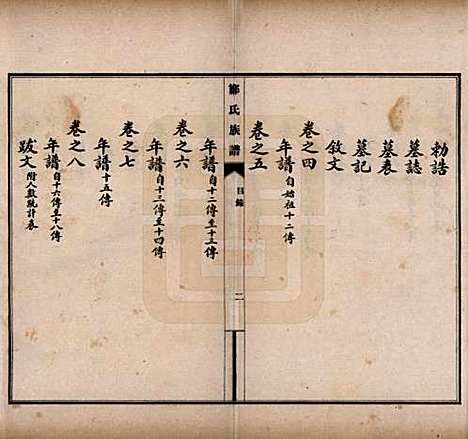 勅誥
墓誌
墓表
墓記
敘文
卷之四
年譜自始祖十二傳
卷之五
氏族譜
目錄
二
年譜自十二傳至十三傳
卷之六
年譜自十三傳至十四傳
卷之七
年譜十五傳
卷之八
年譜自十六傳至十八傳
跋文附人數統計表